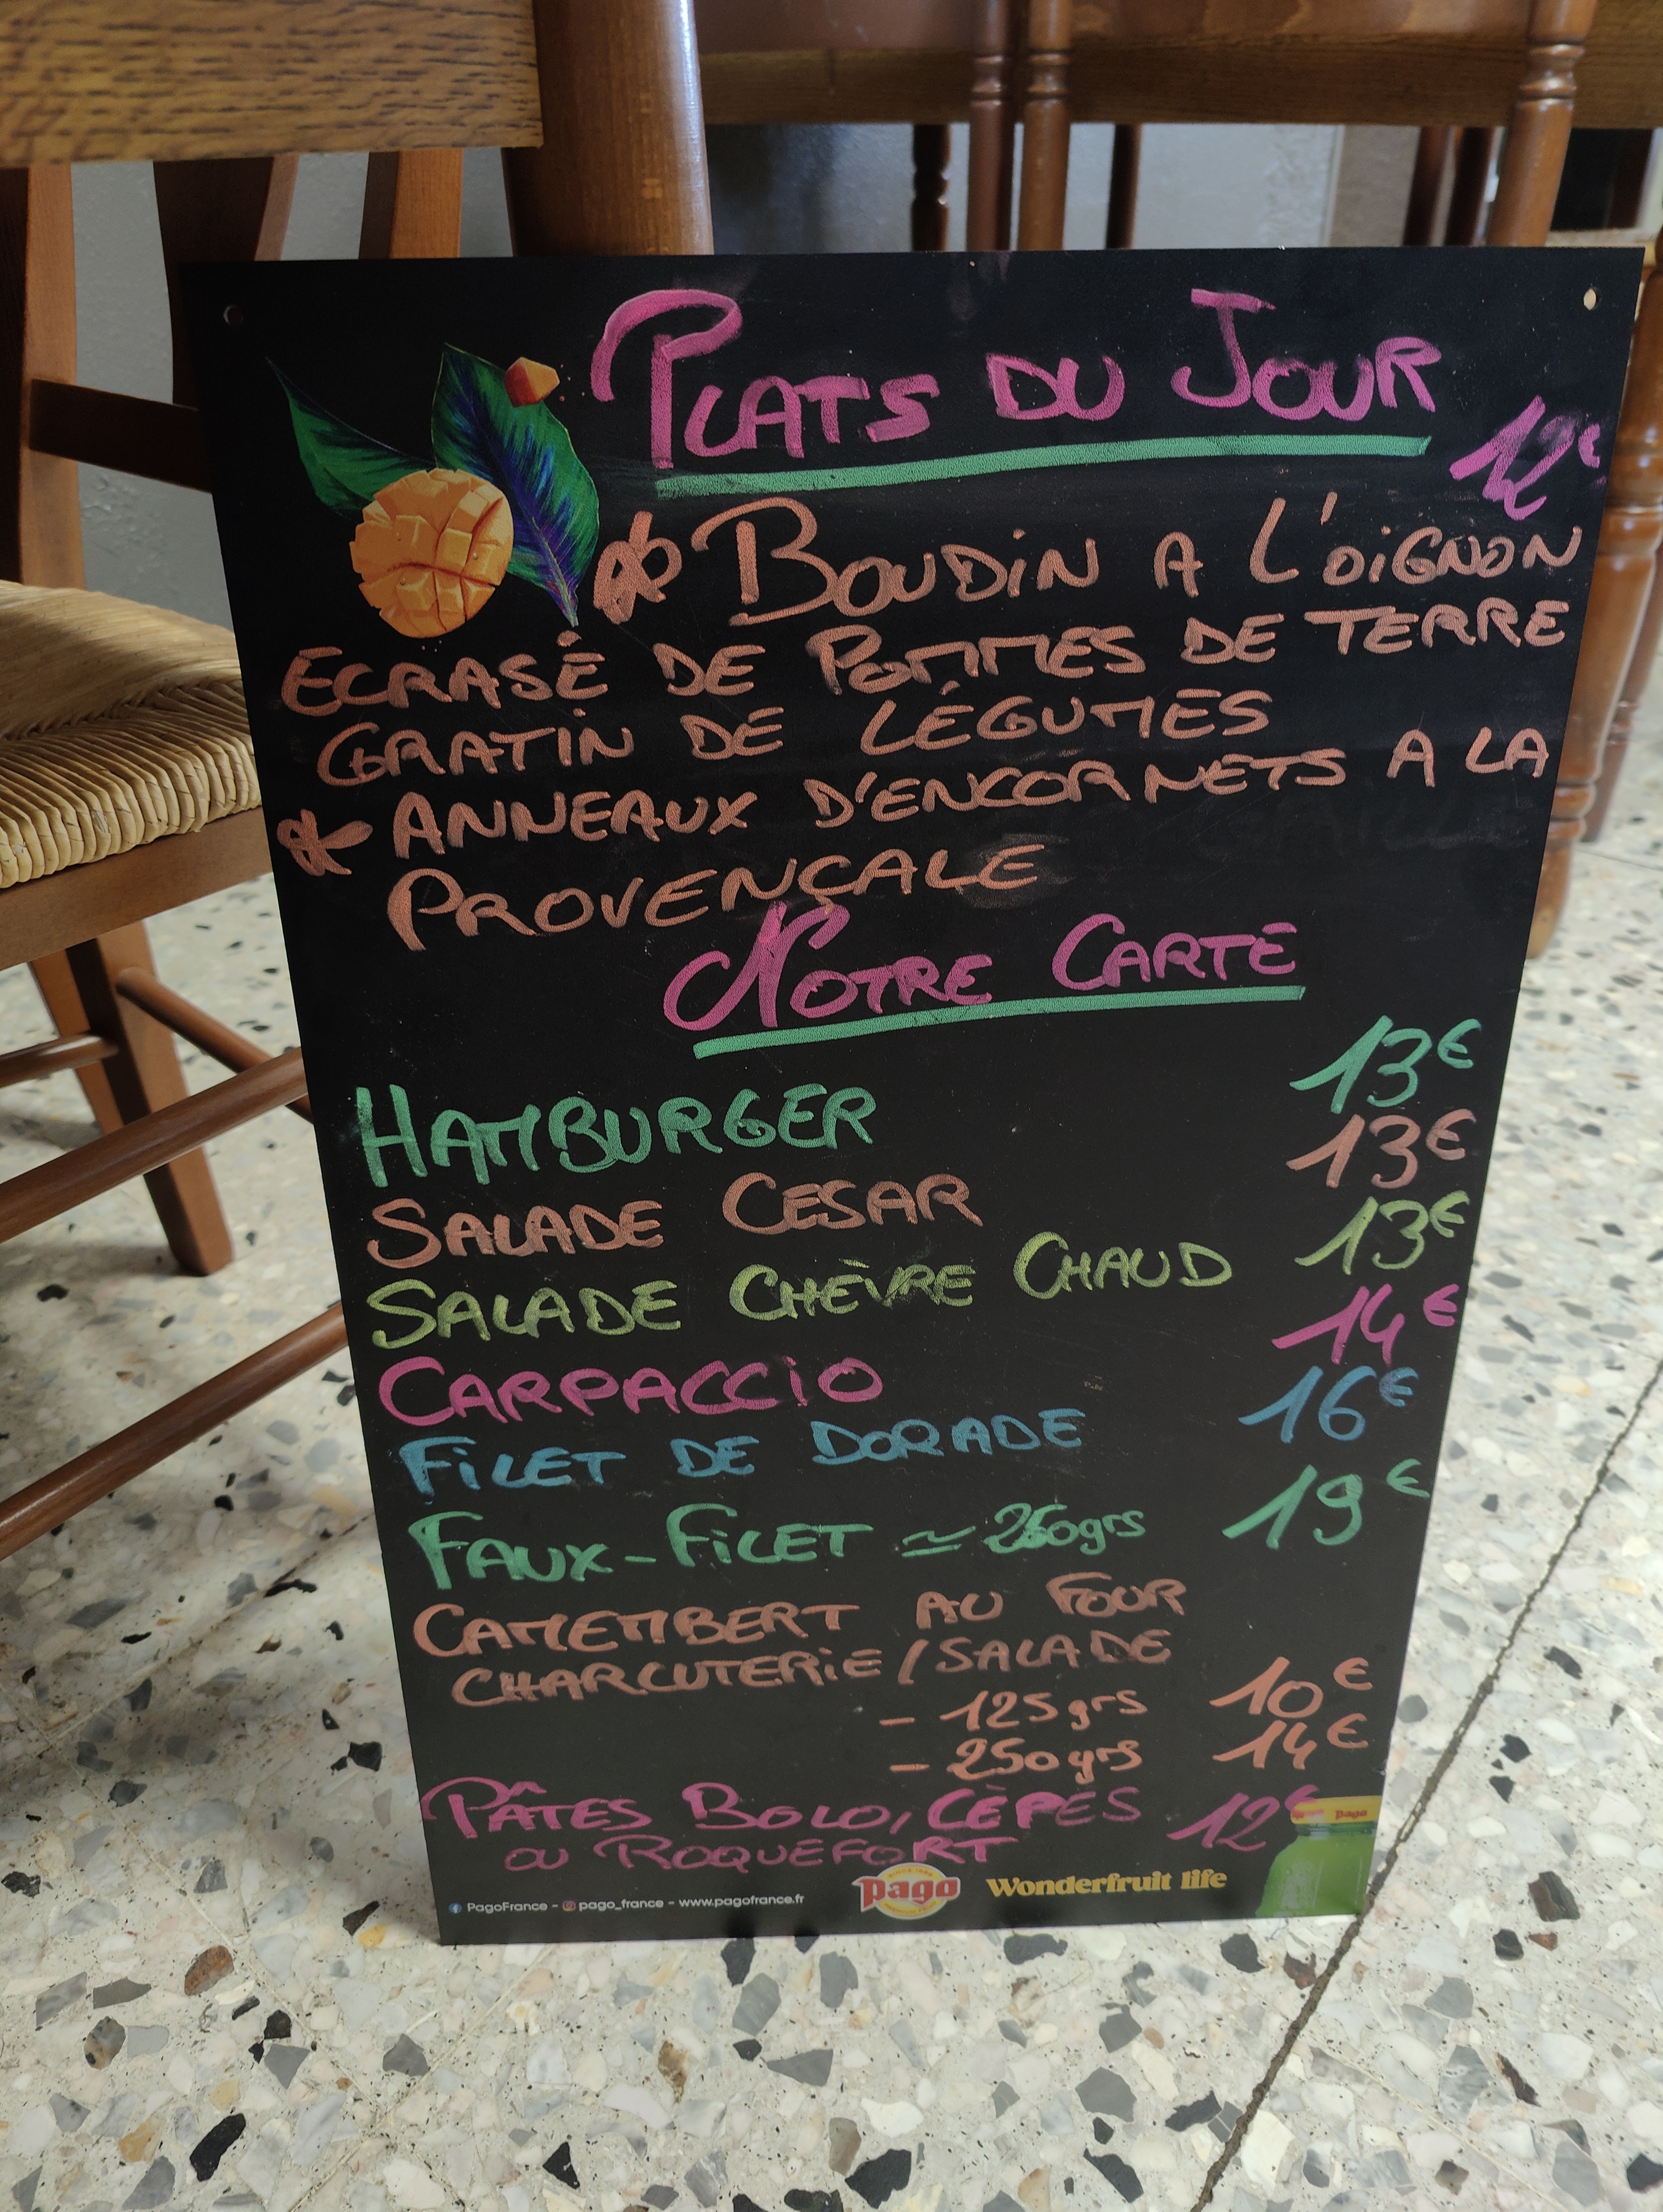 PLATS DU JOUR
12€
* BOUDIN A L'OIGNON
ECRASÉ DE POMMES DE TERRE
GRATIN DE LÉGUMES
* ANNEAUX D'ENCORNETS A LA
PROVENÇALE
NOTRE CARTE
HAMBURGER 13€
SALADE CESAR 13€
SALADE CHÈVRE CHAUD 13€
CARPACCIO 14€
FILET DE DORADE 16€
FAUX-FILET ≃ 260grs 19€
CAMEMBERT AU FOUR
CHARCUTERIE/SALADE
- 125grs 10€
- 250grs 14€
PÂTES BOLO, CÈPES 12€
OU ROQUEFORT
PagoFrance - pago_france - www.pagofrance.fr
pago
Wonderfruit life
pago